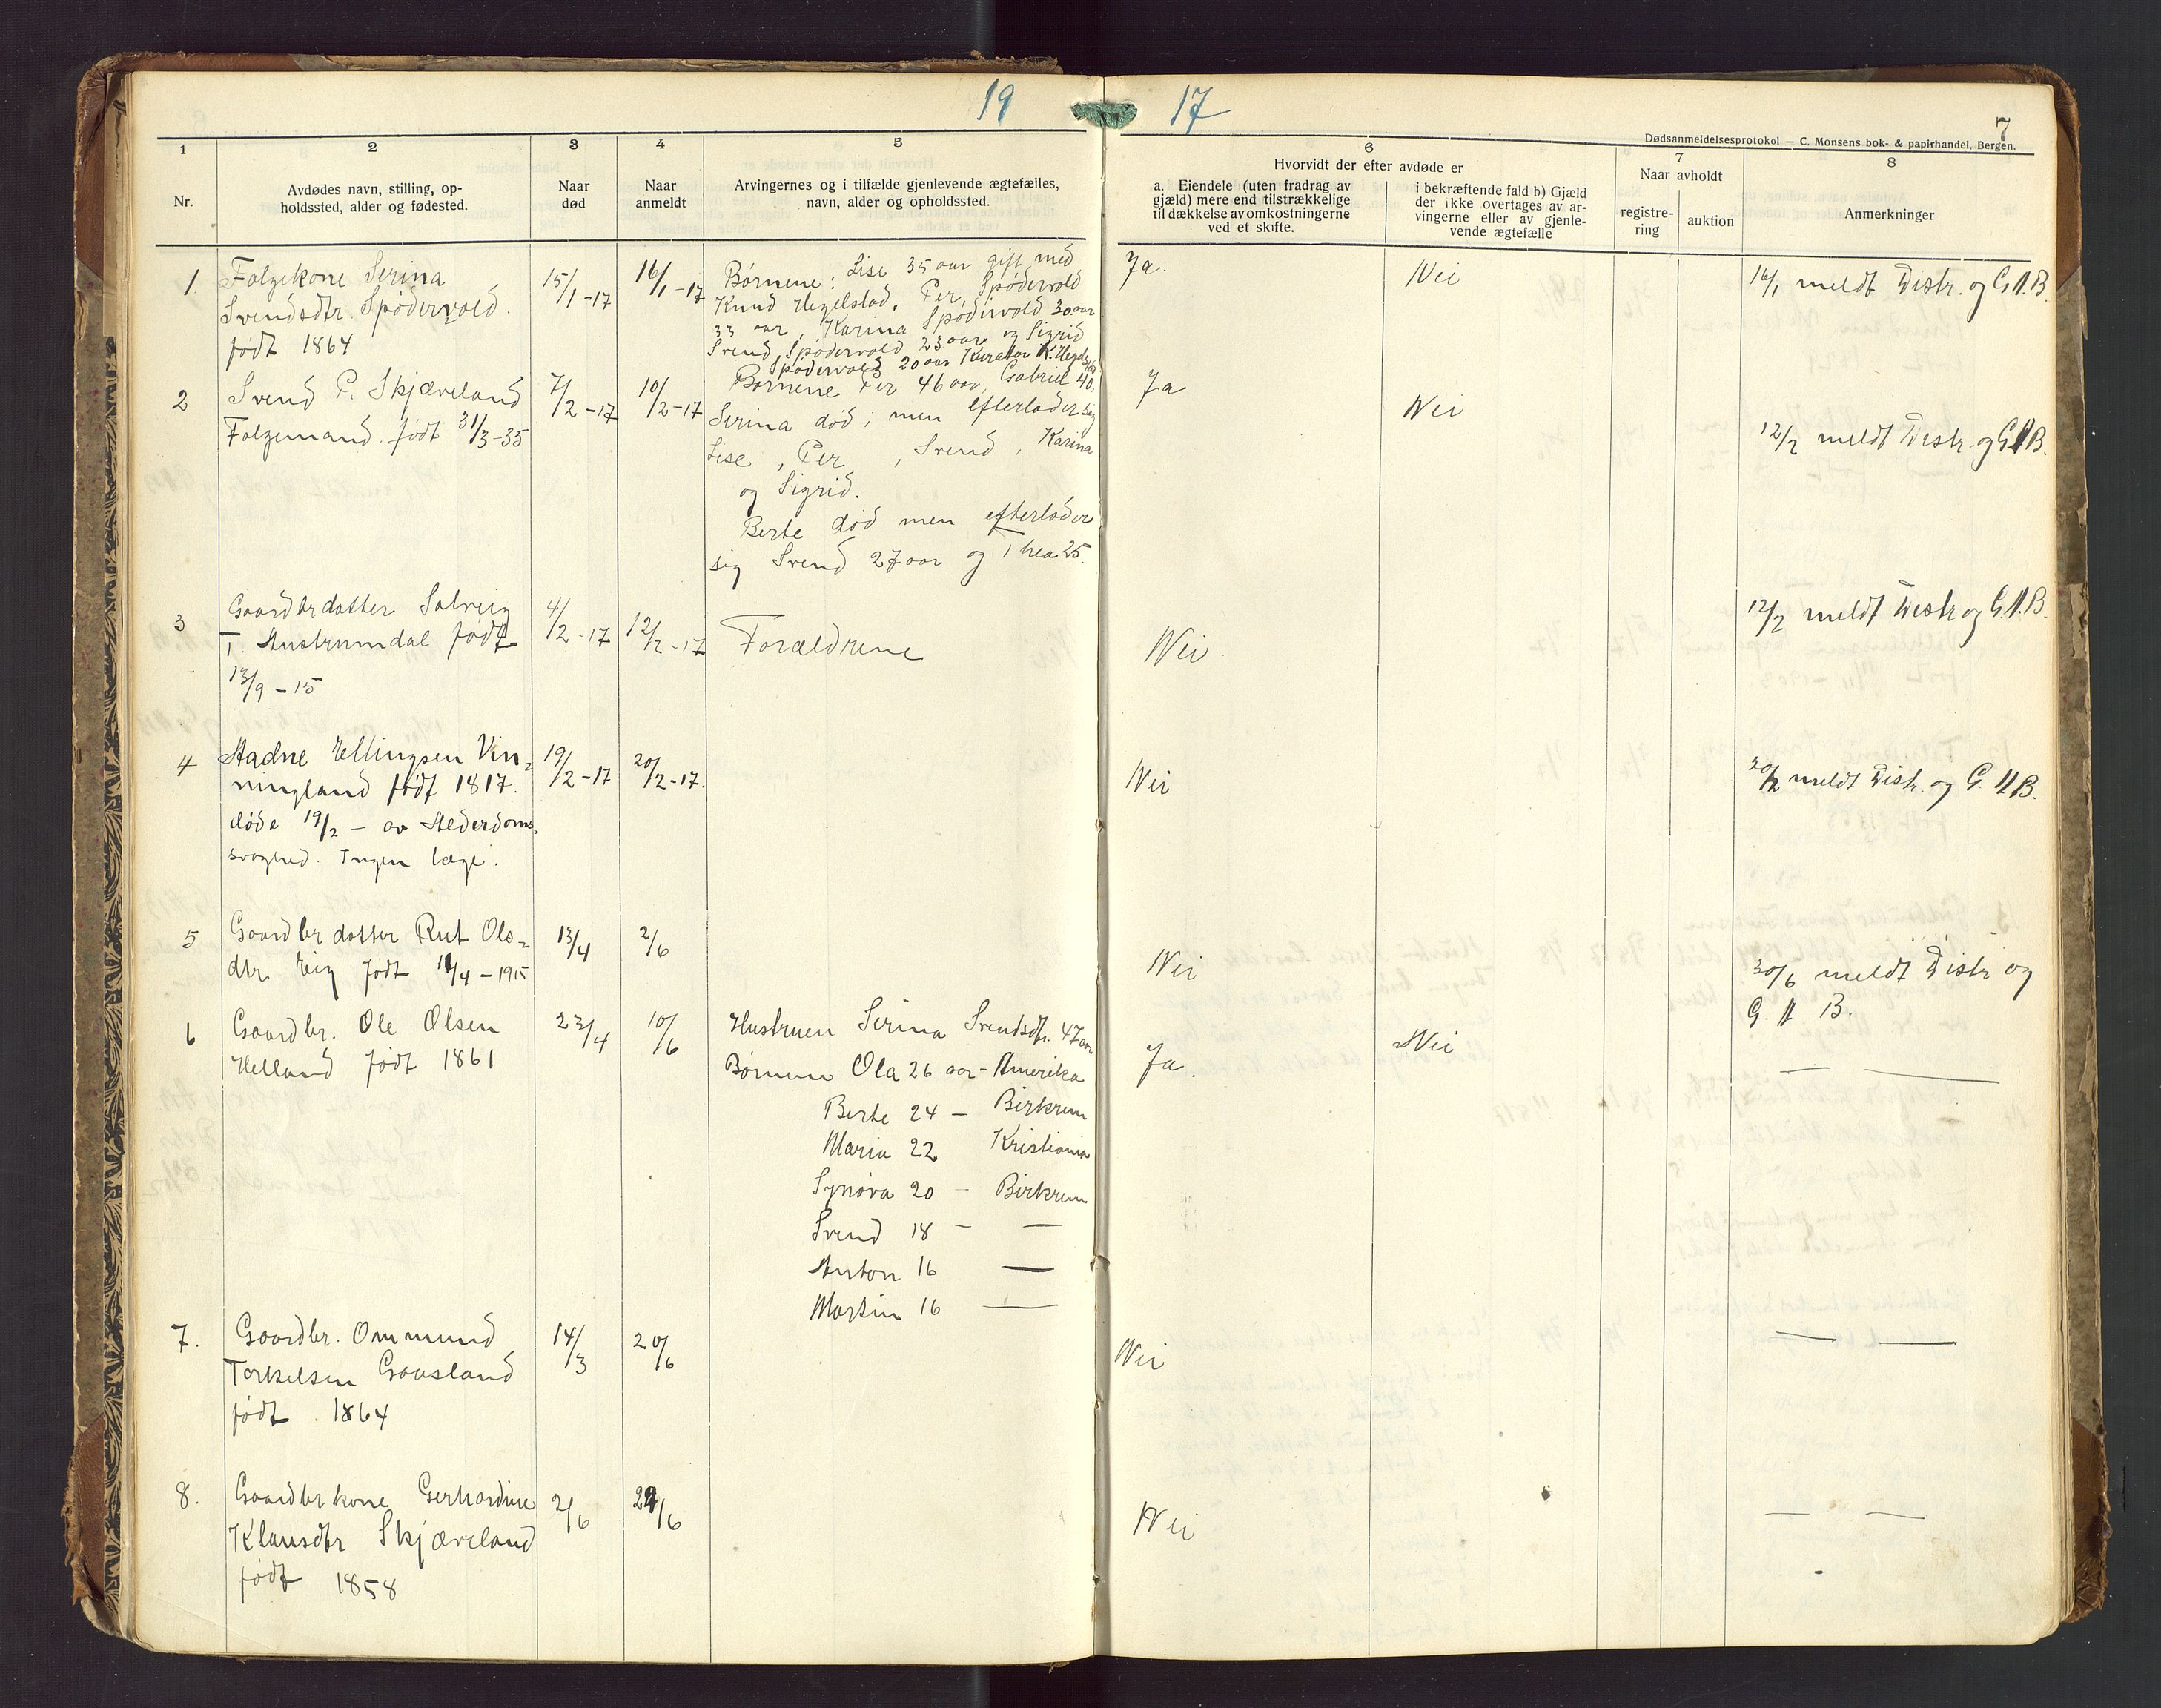 19 17
7
Dødsanmeldelsesprotokol — C. Monsens bok- & papirhandel, Bergen.
1 2 3 4 5 6 7 8
Nr.
Avdødes navn, stilling, op-
holdssted, alder og fødested.
Naar
død
Naar
anmeldt
Arvingernes og i tilfælde gjenlevende ægtefælles,
navn, alder og opholdssted.
Hvorvidt der efter avdøde er
a. Eiendele (uten fradrag av
gjæld) mere end tilstrækkelige
til dækkelse av omkostningerne
ved et skifte.
i bekræftende fald b) Gjæld
der ikke overtages av ar-
vingerne eller av gjenle-
vende ægtefælle
Naar avholdt
registre-
ring
auktion
Anmerkninger
1
Folgekone Serina
Svendsdtr. Spødervold.
født 1864
15/1-17
16/1-17
Børnene: Lise 35 aar gift med
Knud Hegelstad, Per Spødervold
33 aar, Karina Spødervold 30 aar
Svend Spødervold 23 aar og Sigrid
Spødervold 20 aar Kurator K. Hegelstad
Ja.
Nei
16/1 meldt Distr. og G.A.B.
2
Svend P. Skjæveland
Folgemand. født 31/3-35
7/2-17
10/2-17
Børnene Per 46 aar, Gabriel 40,
Serina død; men efterlader sig
Lise, Per, Svend, Karina
og Sigrid.
Berte død men efterlader
sig Svend 27 aar og Thea 25.
Ja
Nei
12/2 meldt Distr. og G.A.B.
3
Gaardbrdatter Solveig
T. Austrumdal født
13/9-15
4/2-17
12/2-17
Forældrene
Nei
12/2 meldt Distr og G.A.B.
4
Aadne Ellingsen Vin-
ningland født 1817.
døde 19/2 - av Alderdoms-
svaghed. Ingen læge.
19/2-17
20/2-17.
Nei
20/2 meldt Distr. og G.A.B.
5
Gaardbrdatter Rut Ols-
dtr. Eig født 11/4-1915
13/4
2/6
Nei
30/6 meldt Distr og
G.A B.
6
Gaardbr. Ole Olsen
Helland født 1861
23/4
10/6
Hustruen Serina Svendsdtr. 47 aar
Børnene Ola 26 aar - Amerika
Berte 24 - Birkrem
Maria 22 Kristiania
Synøva 20 - Birkrem
Svend 18 - —
Anton 16 —
Martin 16 —
Ja.
Nei
— —
7.
Gaardbr. Ommund
Torkelsen Gaasland
født 1864
14/3
20/6
Nei
— —
8.
Gaardbrkone Gerhardine
Klausdtr Skjæveland
født 1858
2/6
/6
Nei
— —